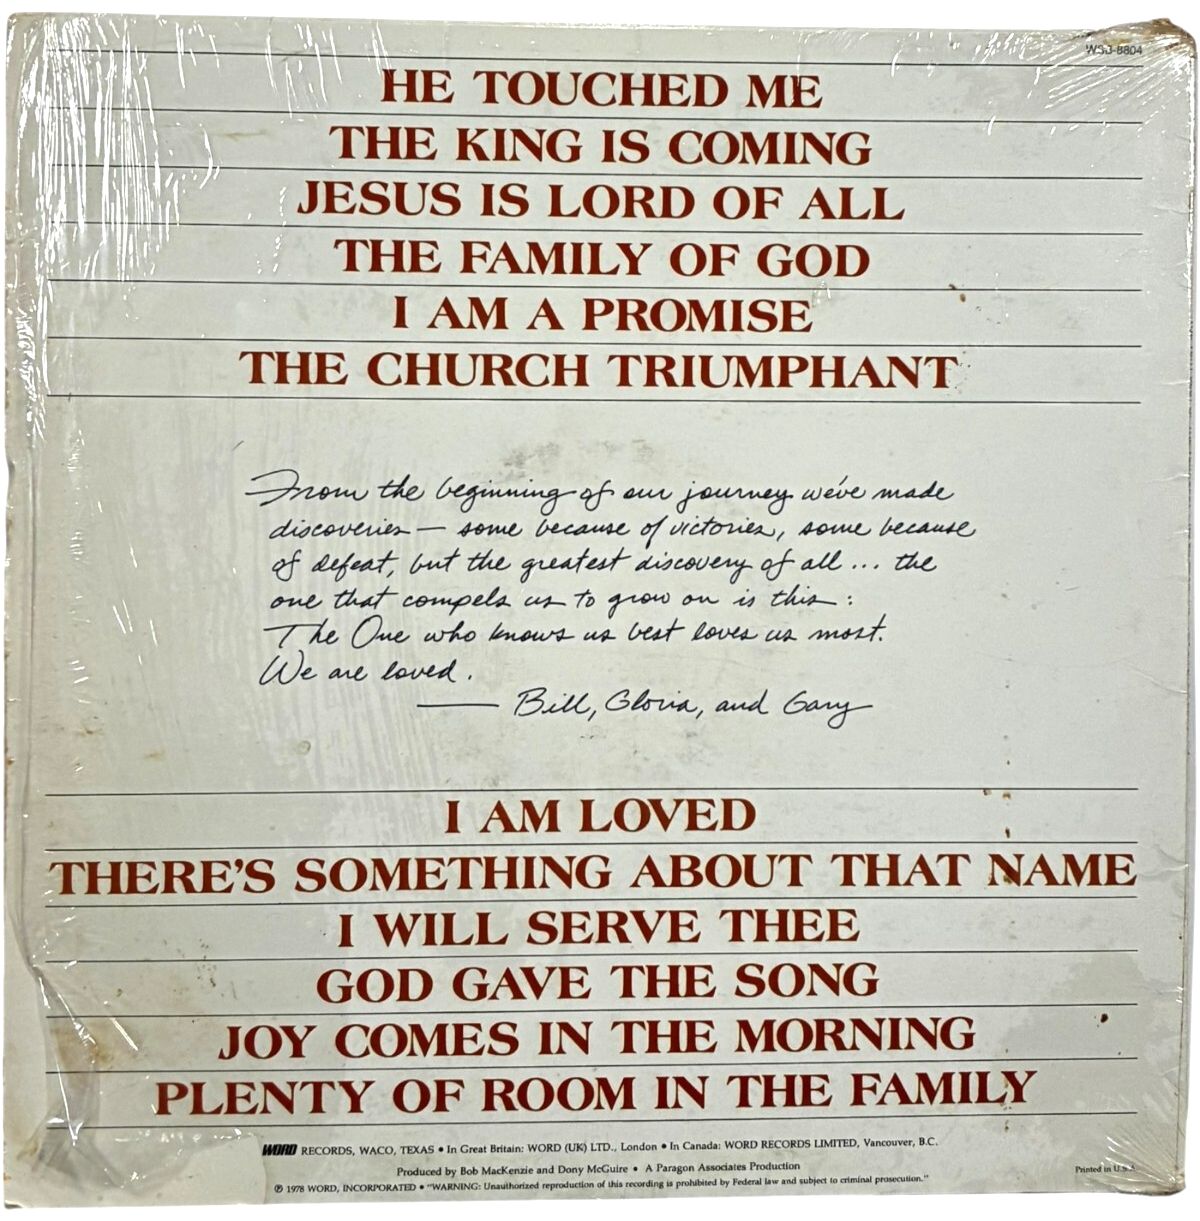 WSB-8804
HE TOUCHED ME
THE KING IS COMING
JESUS IS LORD OF ALL
THE FAMILY OF GOD
I AM A PROMISE
THE CHURCH TRIUMPHANT
From the beginning of our journey we've made
discoveries — some because of victories, some because
of defeat, but the greatest discovery of all ... the
one that compels us to grow on is this:
The One who knows us best loves us most.
We are loved.
— Bill, Gloria, and Gary
I AM LOVED
THERE'S SOMETHING ABOUT THAT NAME
I WILL SERVE THEE
GOD GAVE THE SONG
JOY COMES IN THE MORNING
PLENTY OF ROOM IN THE FAMILY
WORD RECORDS, WACO, TEXAS • In Great Britain: WORD (UK) LTD., London • In Canada: WORD RECORDS LIMITED, Vancouver, B.C.
Produced by Bob MacKenzie and Dony McGuire • A Paragon Associates Production
Printed in U.S.A.
℗ 1978 WORD, INCORPORATED • "WARNING: Unauthorized reproduction of this recording is prohibited by Federal law and subject to criminal prosecution."